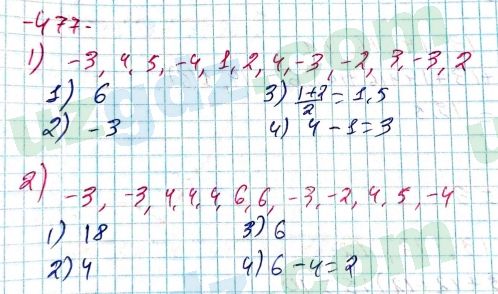 -477-
1) -3, 4, 5, -4, 1, 2, 4, -3, -2, 3, -3, 2
1) 6 3) 1+2/2 = 1,5
2) -3 4) 4 - 1 = 3
2) -3, -3, 4, 4, 4, 6, 6, -3, -2, 4, 5, -4
1) 18 3) 6
2) 4 4) 6 - 4 = 2